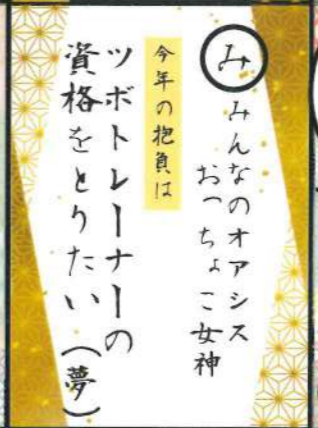 み
みんなのオアシス
おっちょこ女神
今年の抱負は
ツボトレーナーの
資格をとりたい（夢）